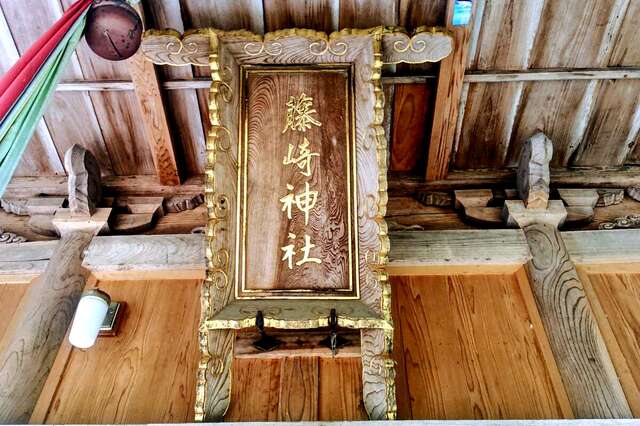 藤崎神社